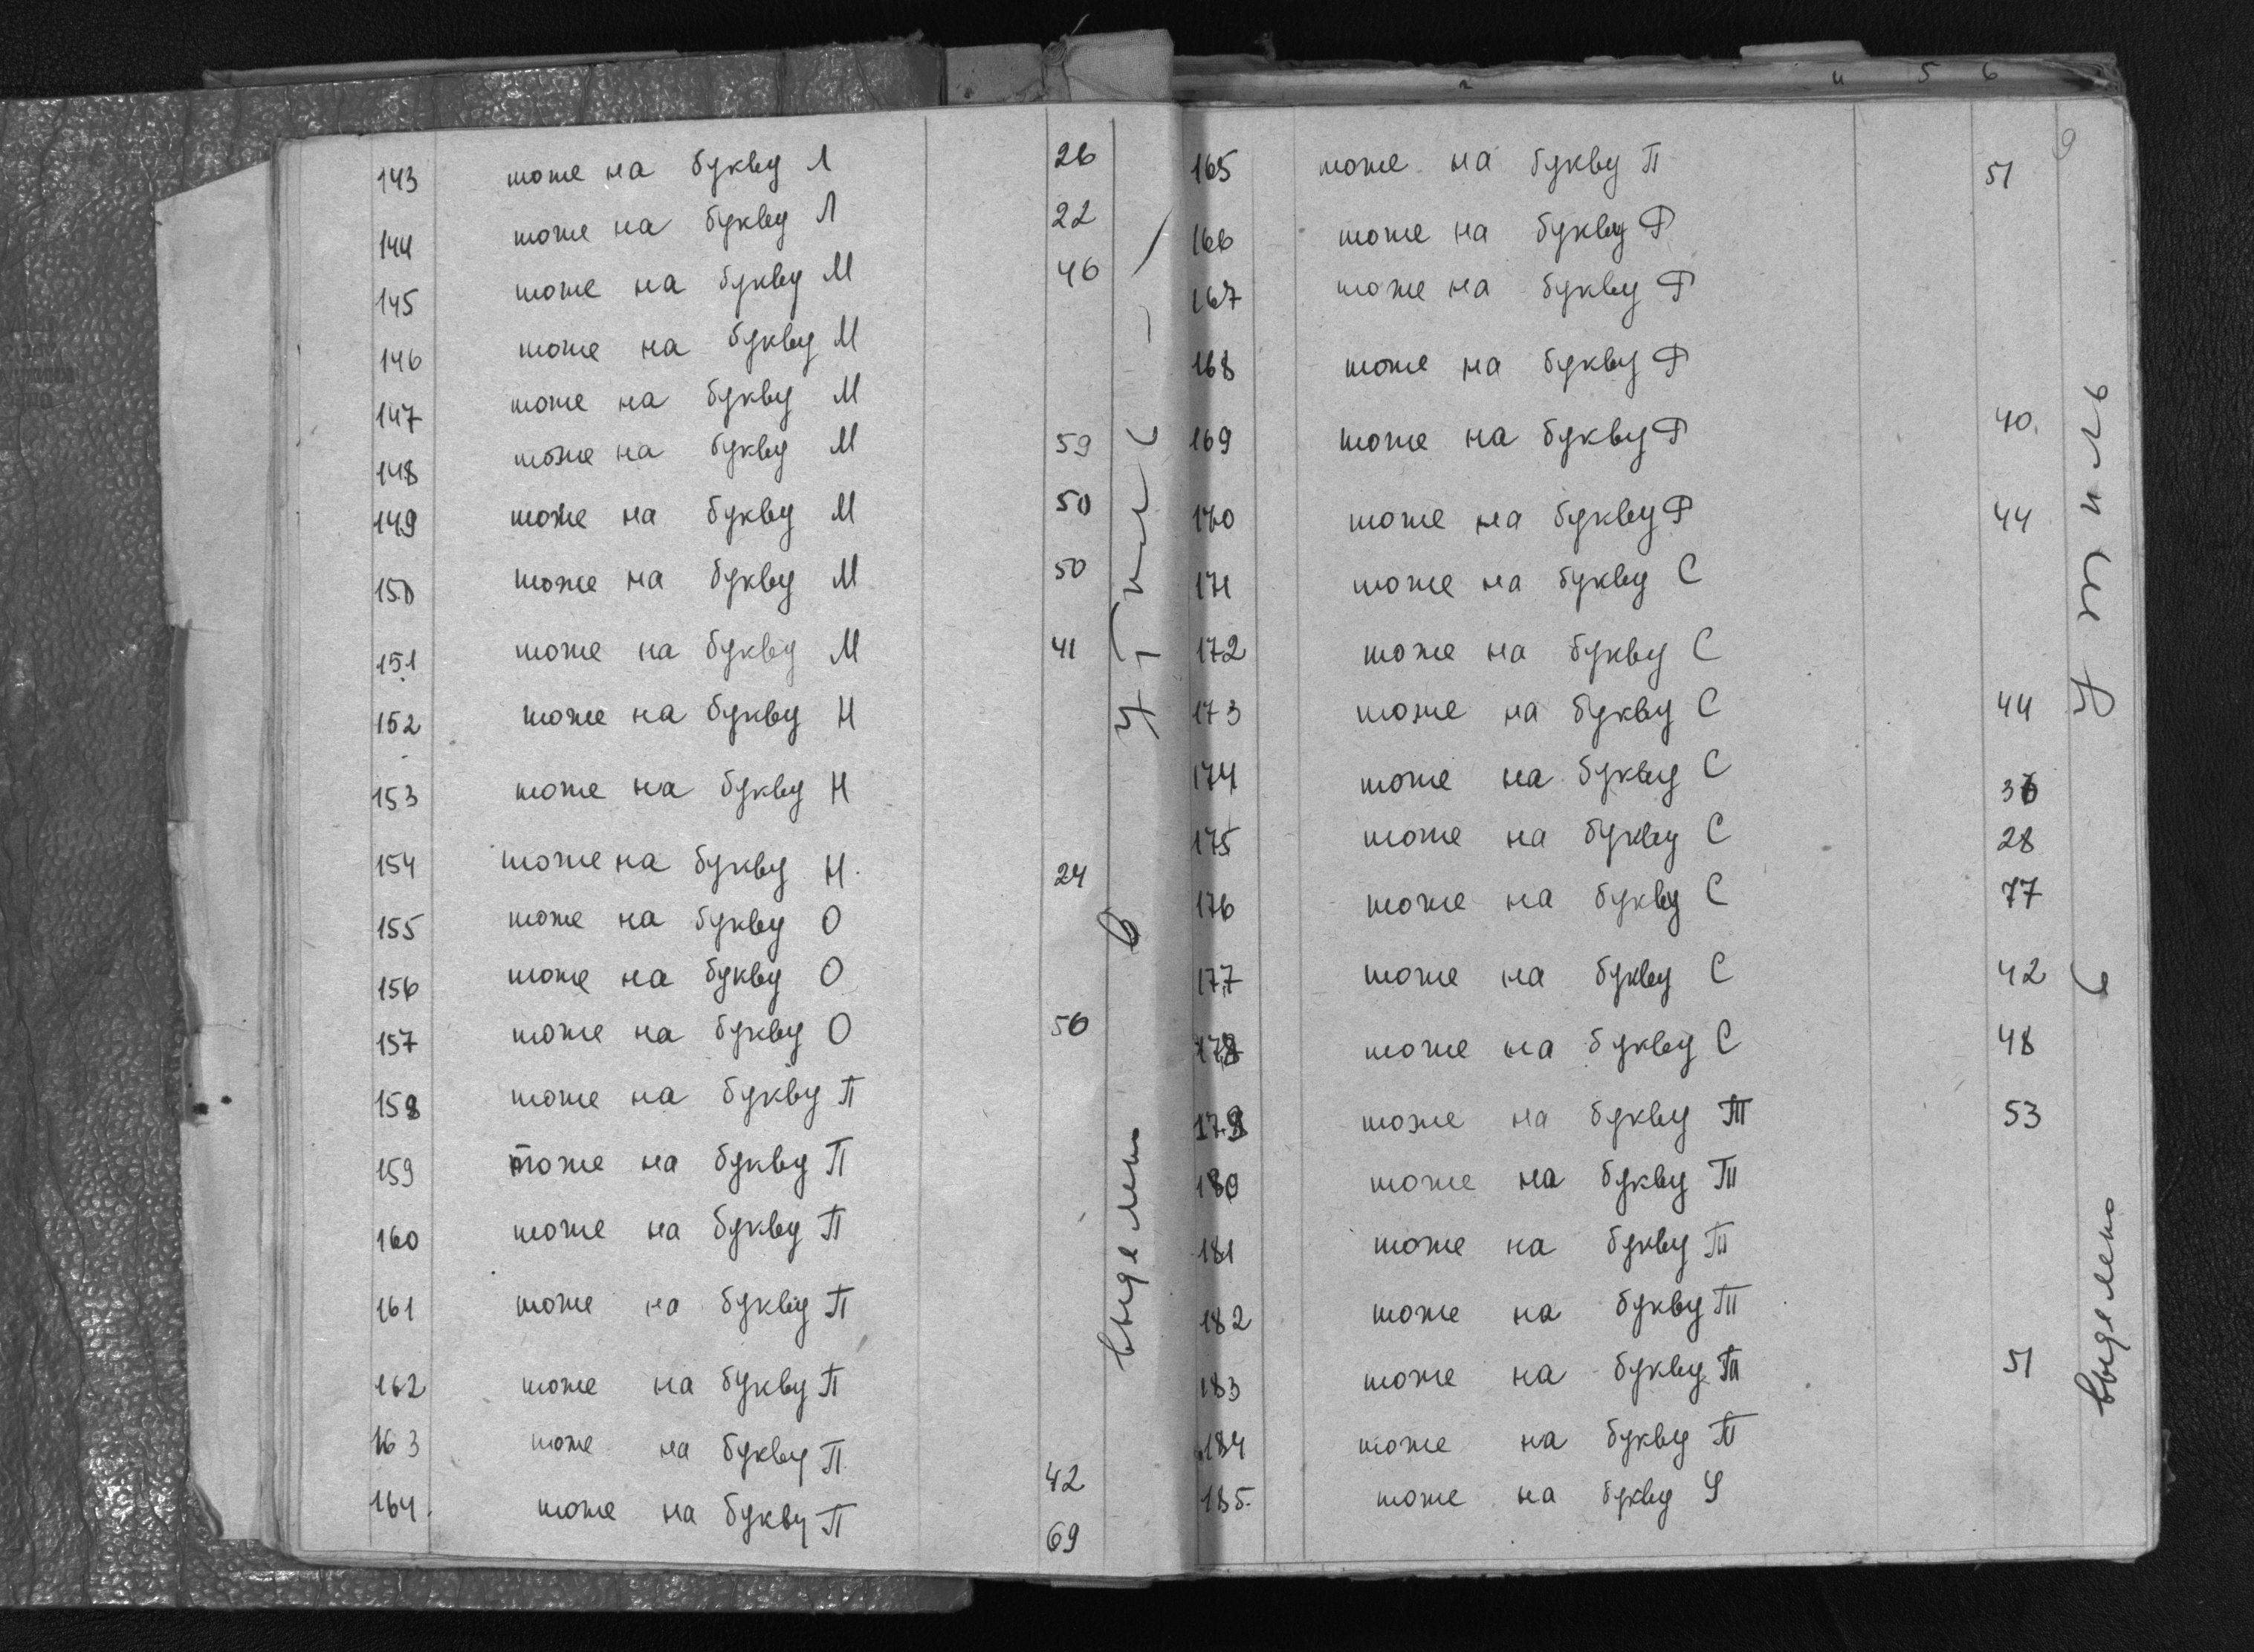 143 тоже на букву Л 26
144 тоже на букву Л 22
145 тоже на букву М 46
146 тоже на букву М
147 тоже на букву М
148 тоже на букву М 59
149 тоже на букву М 50
150 тоже на букву М 50
151 тоже на букву М 41
152 тоже на букву Н
153 тоже на букву Н
154 тоже на букву Н. 24
155 тоже на букву О
156 тоже на букву О
157 тоже на букву О 56
158 тоже на букву П
159 тоже на букву П
160 тоже на букву П
161 тоже на букву П
162 тоже на букву П
163 тоже на букву П 42
164. тоже на букву П 69
выделено в утиль
и 5 6
9
165 тоже на букву П 51
166 тоже на букву Р
167 тоже на букву Р
168 тоже на букву Р
169 тоже на букву Р 40.
170 тоже на букву Р 44
171 тоже на букву С
172 тоже на букву С
173 тоже на букву С 44
174 тоже на букву С 36
175 тоже на букву С 28
176 тоже на букву С 77
177 тоже на букву С 42
178 тоже на букву С 48
179 тоже на букву Т 53
180 тоже на букву Т
181 тоже на букву Т
182 тоже на букву Т
183 тоже на букву Т 51
184 тоже на букву Т
185. тоже на букву У
выделено в утиль